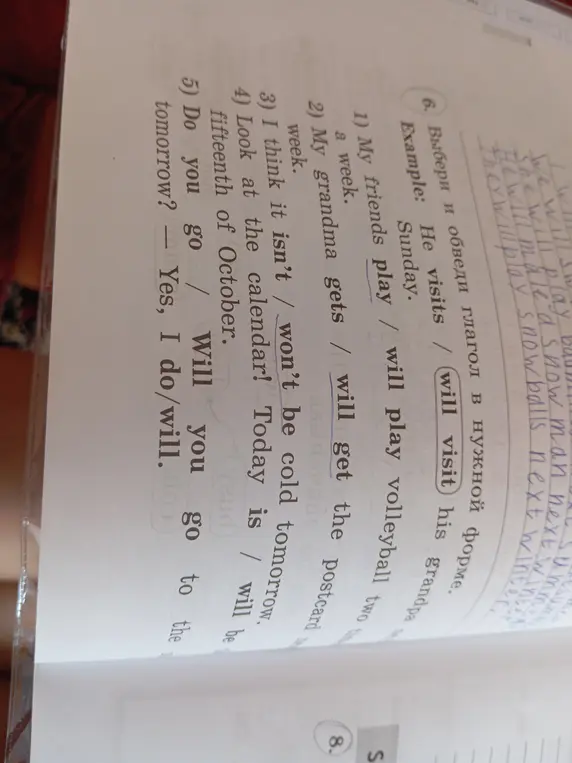 6. Выбери и обведи глагол в нужной форме.
Example: He visits / will visit his grandpa
Sunday.
1) My friends play / will play volleyball two
a week.
2) My grandma gets / will get the postcard
week.
3) I think it isn't / won't be cold tomorrow.
4) Look at the calendar! Today is / will be
fifteenth of October.
5) Do you go / Will you go to the
tomorrow? — Yes, I do/will.
She will play
He will make a snowman next win
They will play snowballs next winter
8.
S